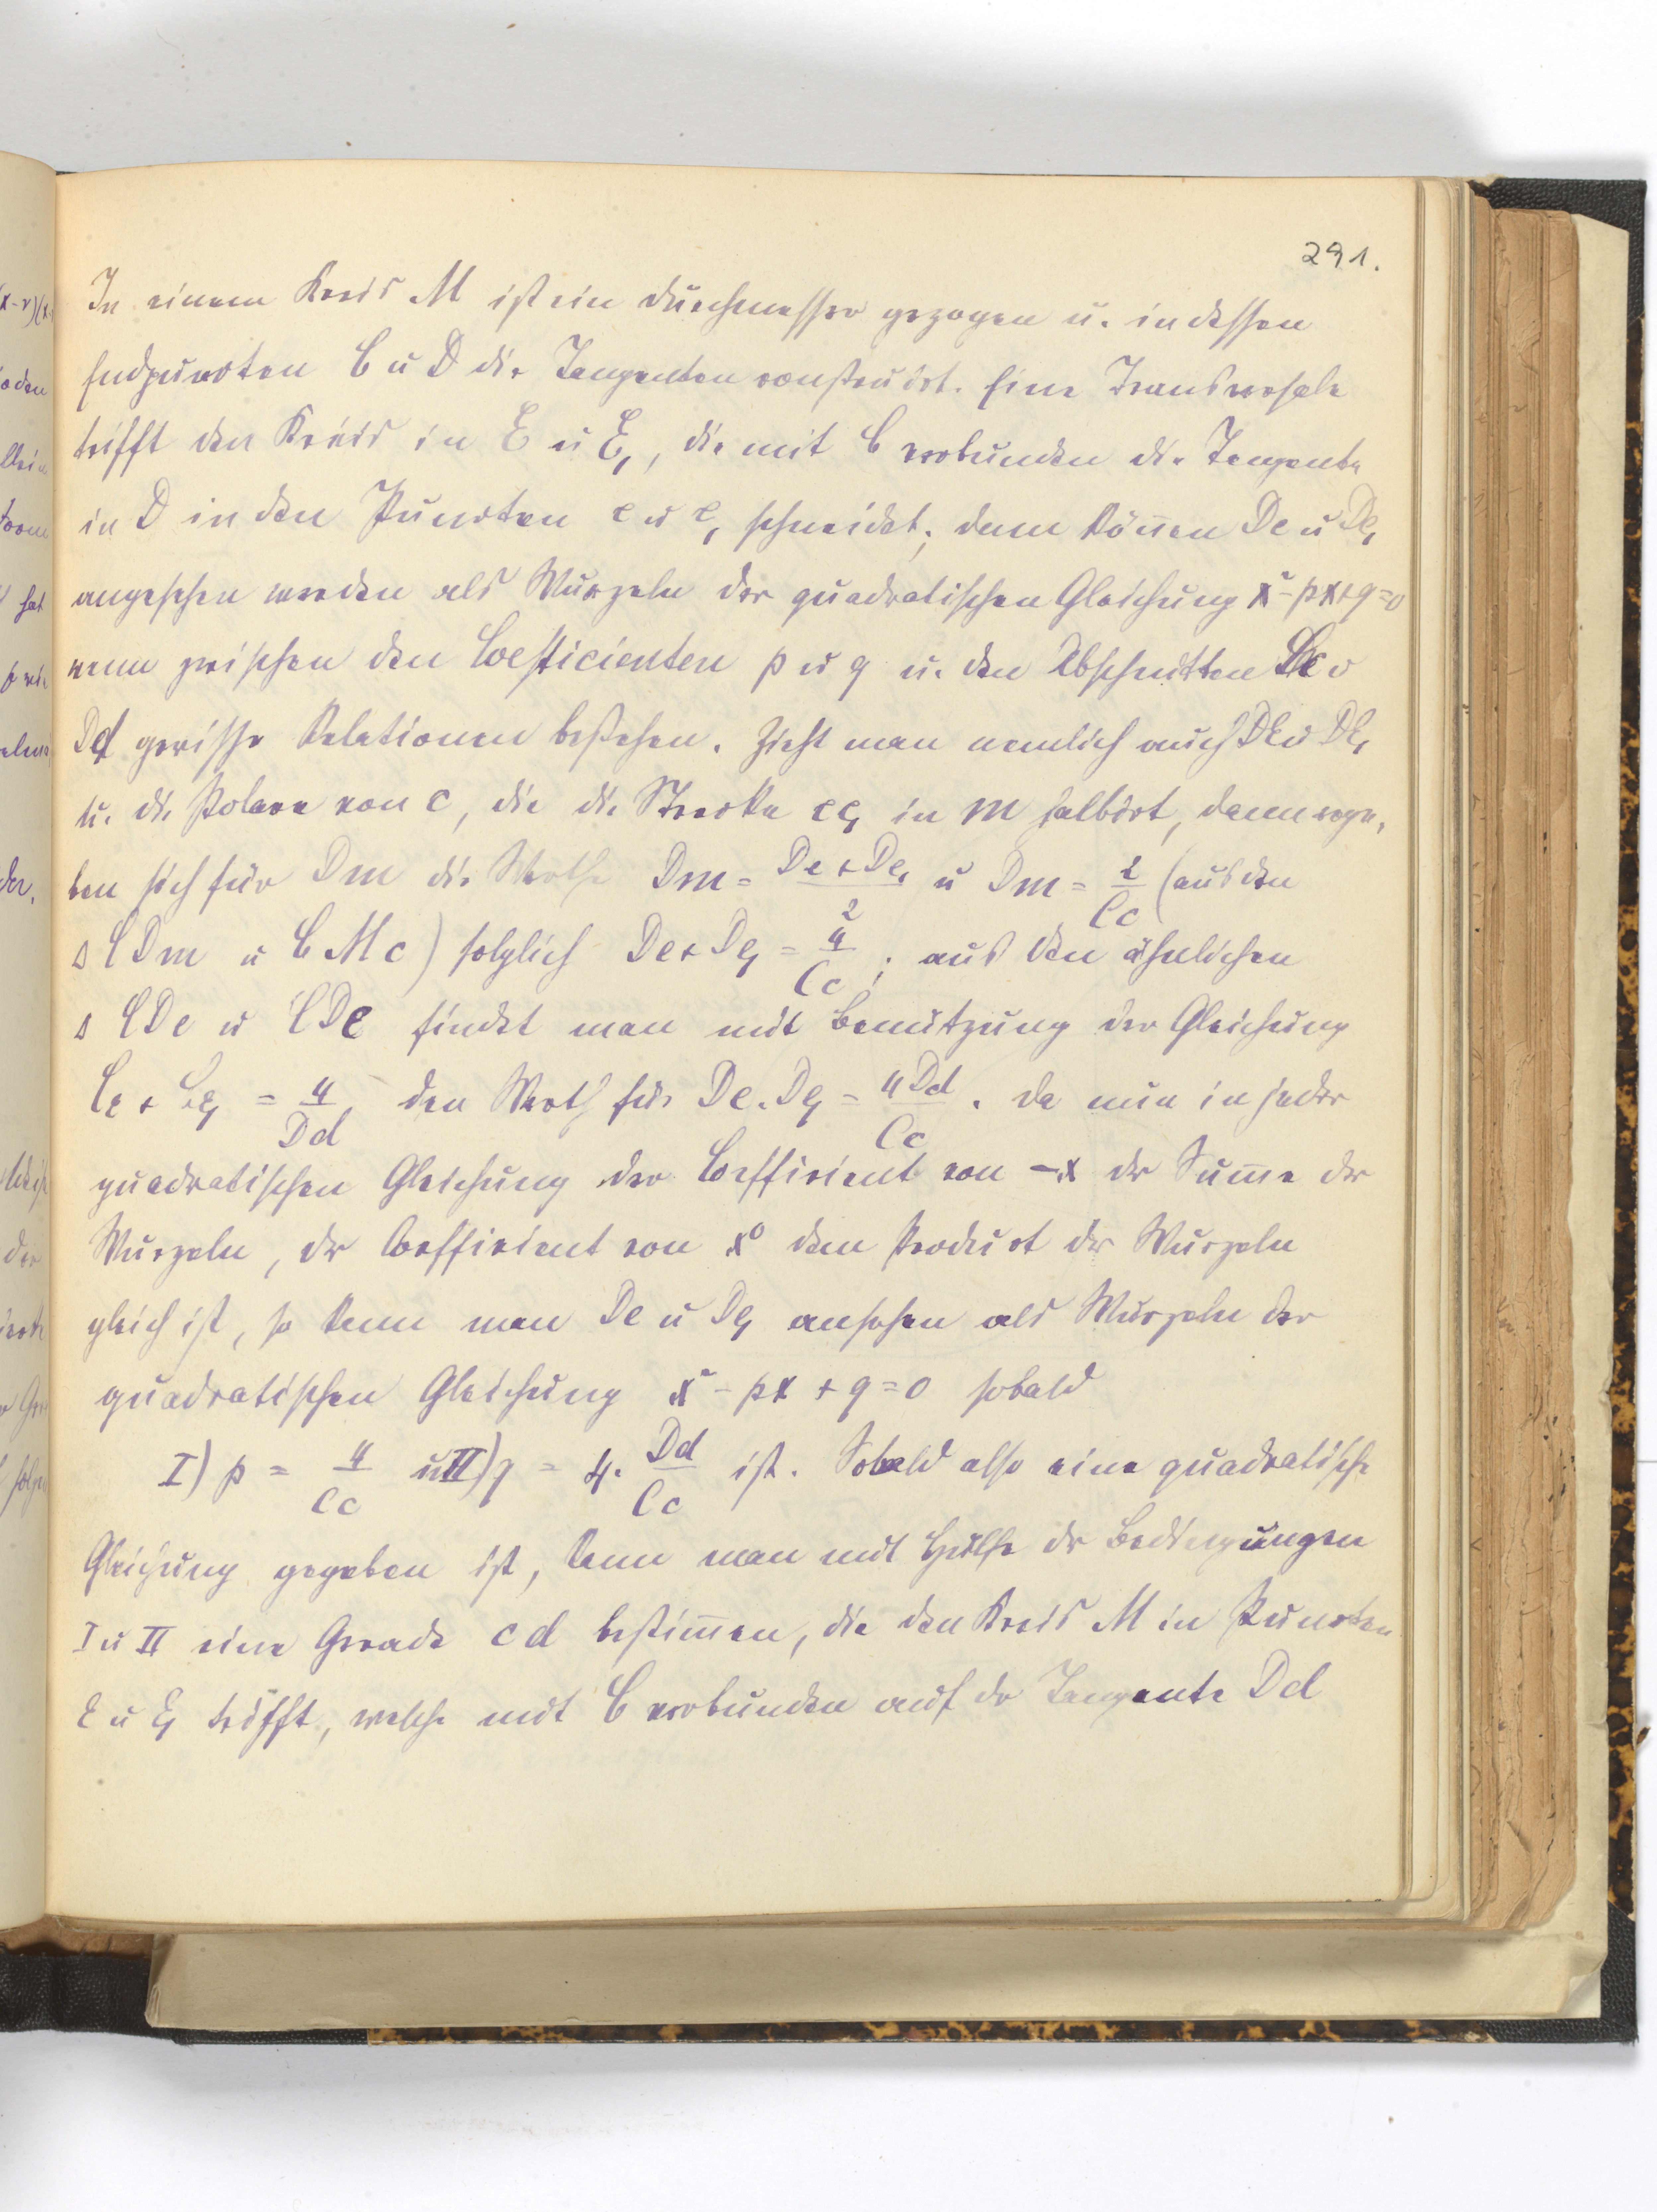 291.
In einem Kreis M ist ein Durchmesser gezogen u. in dessen
Endpuncten C u D die Tangenten construirt. Eine Transversale
trifft den Kreis in E u E₁, die mit C verbunden die Tangente
in D in den Puncten e u e₁ schneidet; dann können De u De₁
angesehen werden als Wurzeln der quadratischen Gleichung x²-px+q=0
wenn zwischen den Coefficienten p u q u. den Abschnitten Cc u
Dd gewisse Relationen bestehen. Zieht man nemlich auch DE u DE₁
u. die Polare von c, die die Strecke ee₁ in m halbirt, dann erge-
ben sich für Dm die Werthe Dm = (De+De₁)/2 u Dm = 2/Cc (aus den
Δ CDm u CMc) folglich De+De₁ = 4/Cc; aus den ähnlichen
Δ CDe u CDE findet man mit Benützung der Gleichung
= 4/Dd den Werth für De.De₁ = 4Dd/Cc. Da nun in jeder
quadratischen Gleichung der Coefficient von -x der Sum̅e der
Wurzeln, der Coefficient von x⁰ dem Product der Wurzeln
gleich ist, so kann man De u De₁ ansehen als Wurzeln der
quadratischen Gleichung x²-px+q=0 sobald
I) p = 4/Cc u II) q = 4. Dd/Cc ist. Sobald also eine quadratische
Gleichung gegeben ist, kann man mit Hülfe der Bedingungen
I u II eine Gerade cd bestim̅en, die den Kreis M in Puncten
E u E₁ trifft, welche mit C verbunden auf der Tangente Dd